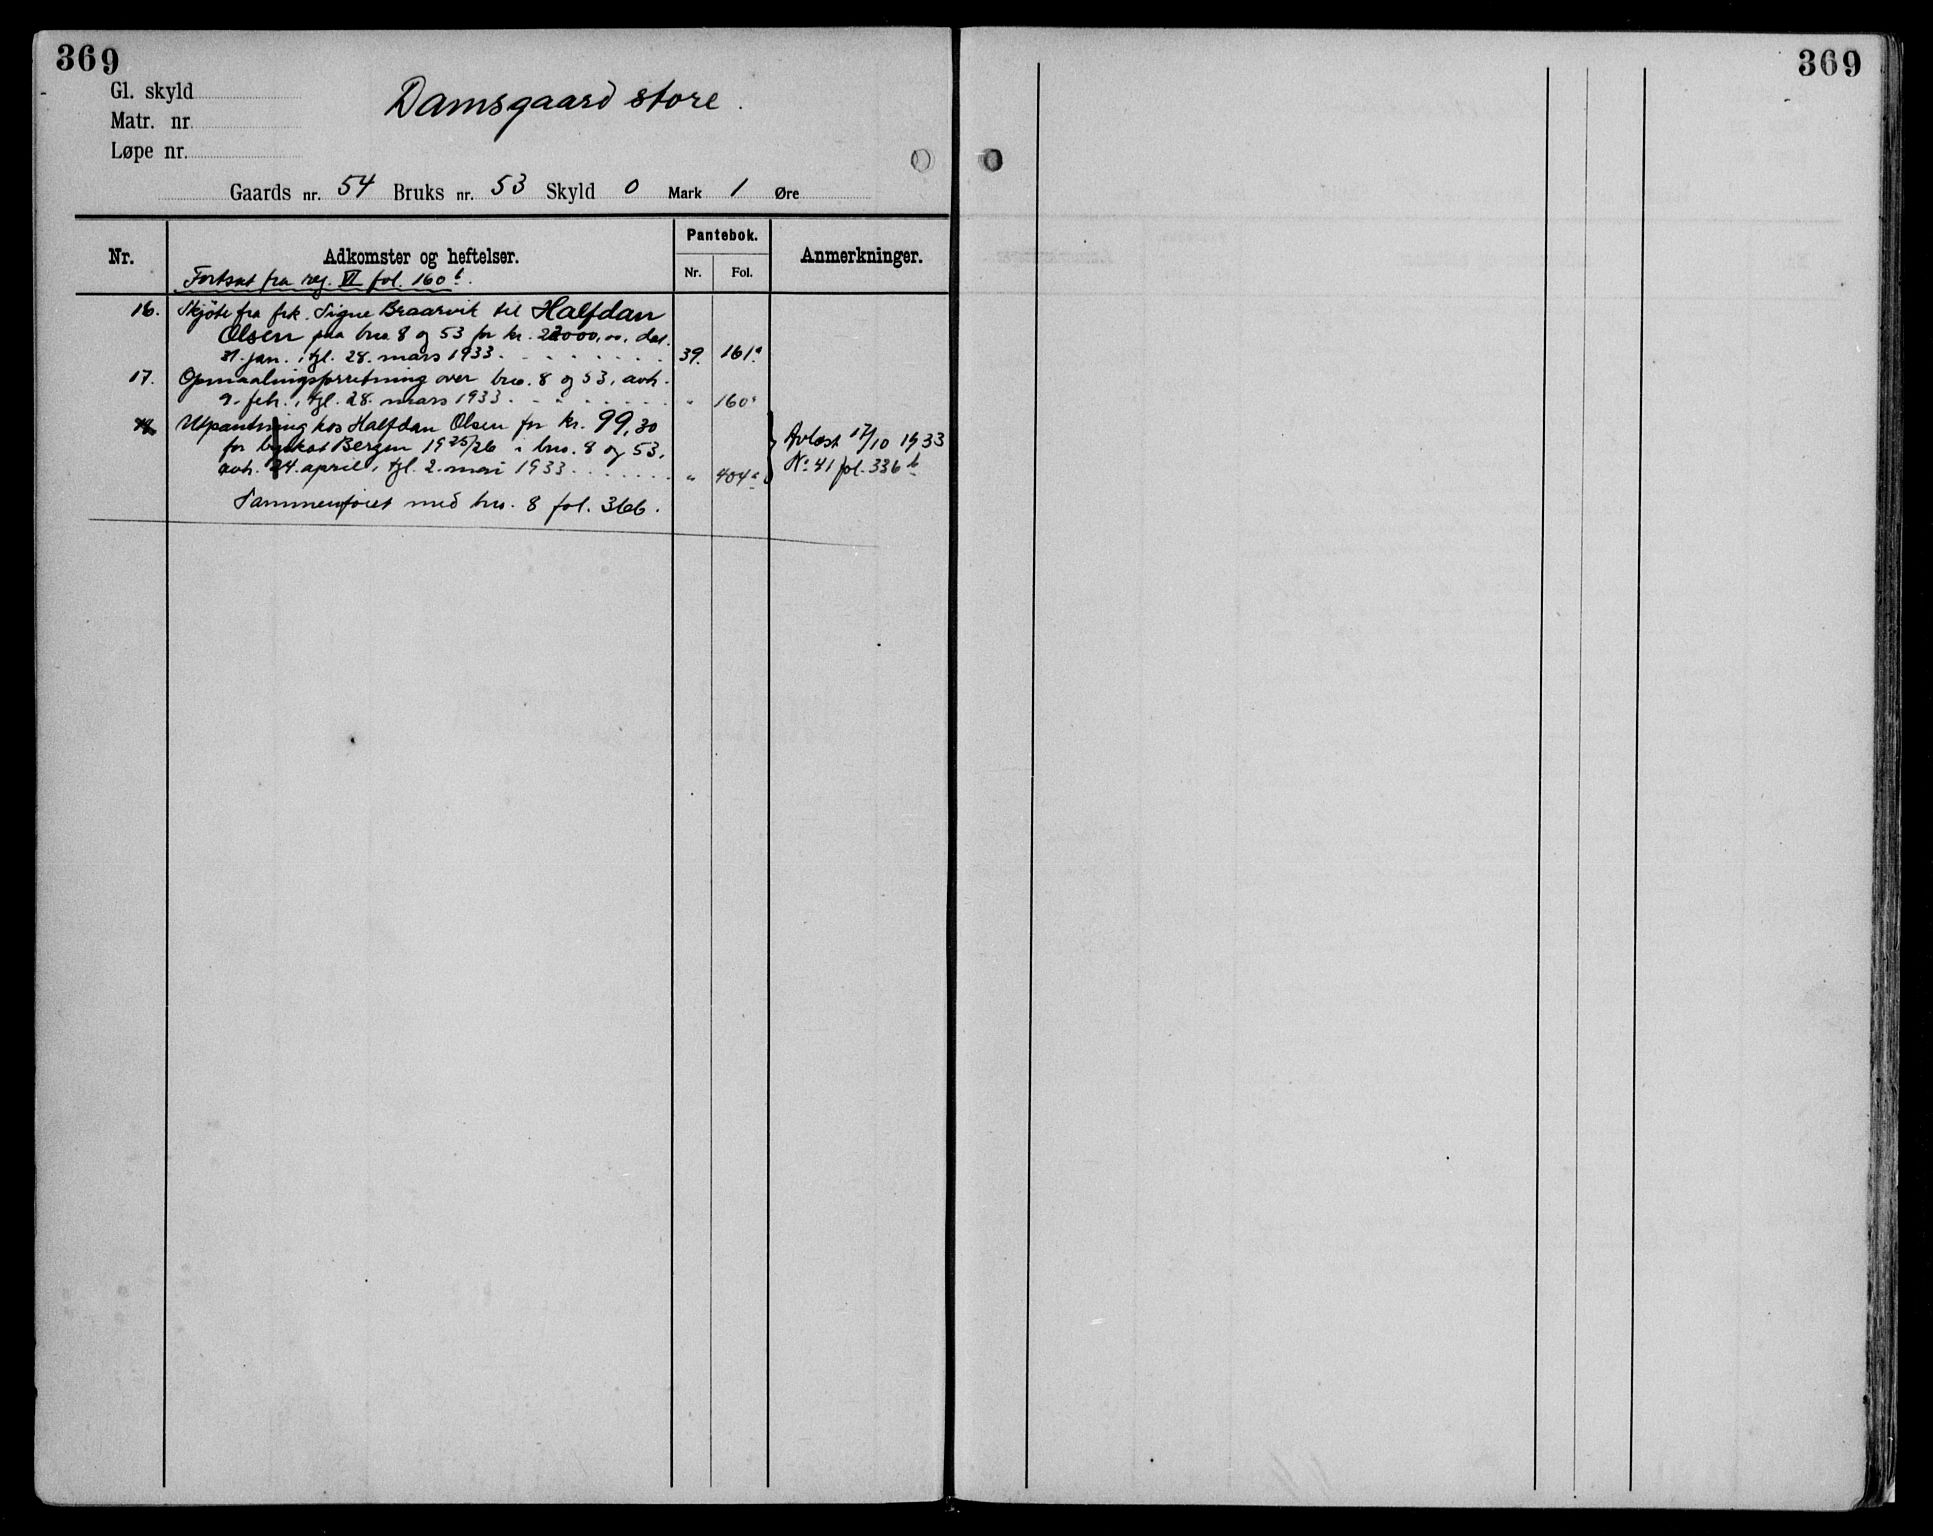 369
369
Gl. skyld
Matr. nr
Løpe nr.
Damsgaard store.
Gaards nr. 54 Bruks nr. 53 Skyld 0 Mark 1 Øre
Nr.
Adkomster og heftelser.
Pantebok.
Nr.
Fol.
Anmerkninger.
Fortsat fra reg. VI fol. 160 b.
16. Skjöte fra frk. Signe Braarvik til Halfdan
Olsen paa bno. 8 og 53 for kr. 22000,00, dat.
31. jan., tgl. 28. mars 1933. 39. 161a
17. Opmaalingsforretning over bno. 8 og 53, avh.
9. feb., tgl. 28. mars 1933. " 160a
18. Utpantning hos Halfdan Olsen for kr. 99,30
for byskat Bergen 1925/26 i bno. 8 og 53,
avh. 24. april, tgl. 2. mai 1933. " 404a
Avlæst 17/10 1933
No 41 fol. 336 b
Sammenføiet med bno. 8 fol. 366.